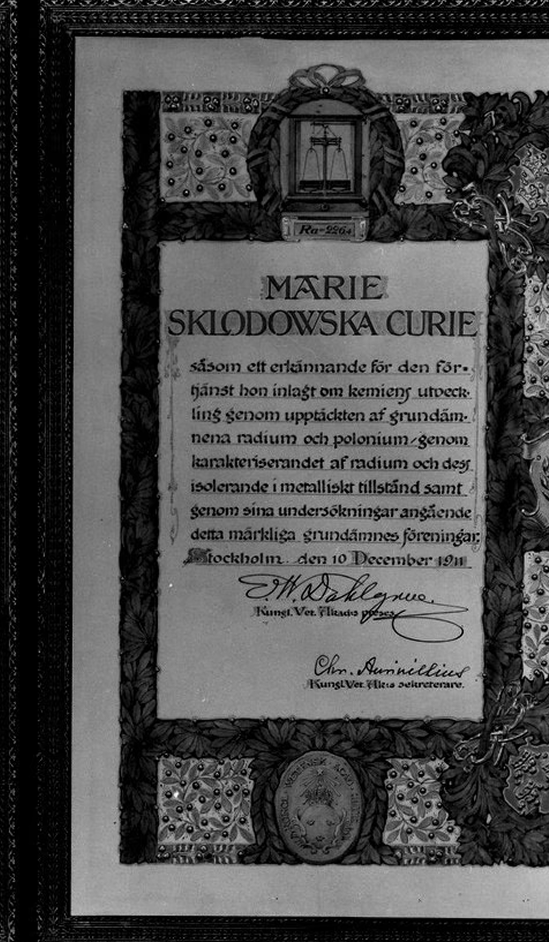 Ra=226,4
MARIE
SKLODOWSKA CURIE
såsom ett erkännande för den för-
tjänst hon inlagt om kemiens utveck-
ling genom upptäckten af grundäm-
nena radium och polonium, genom
karakteriserandet af radium och dess
isolerande i metalliskt tillstånd samt
genom sina undersökningar angående
detta märkliga grundämnes föreningar.
Stockholm den 10 December 1911
E.W. Dahlgren.
Kungl. Vet. Akad:s præses.
Chr. Aurivillius
Kungl. Vet. Ak:s sekreterare.